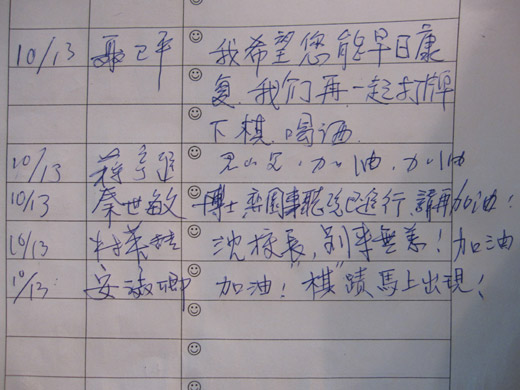 10/13 聶卫平 我希望您能早日康
复.我们再一起打牌
下棋.喝酒.
10/13 加油.加油
10/13 秦世敏 博士 已進行,請再加油!
10/13 林 沈校長,別來無恙!加油
10/13 安淑卿 加油!"棋"蹟馬上出現!